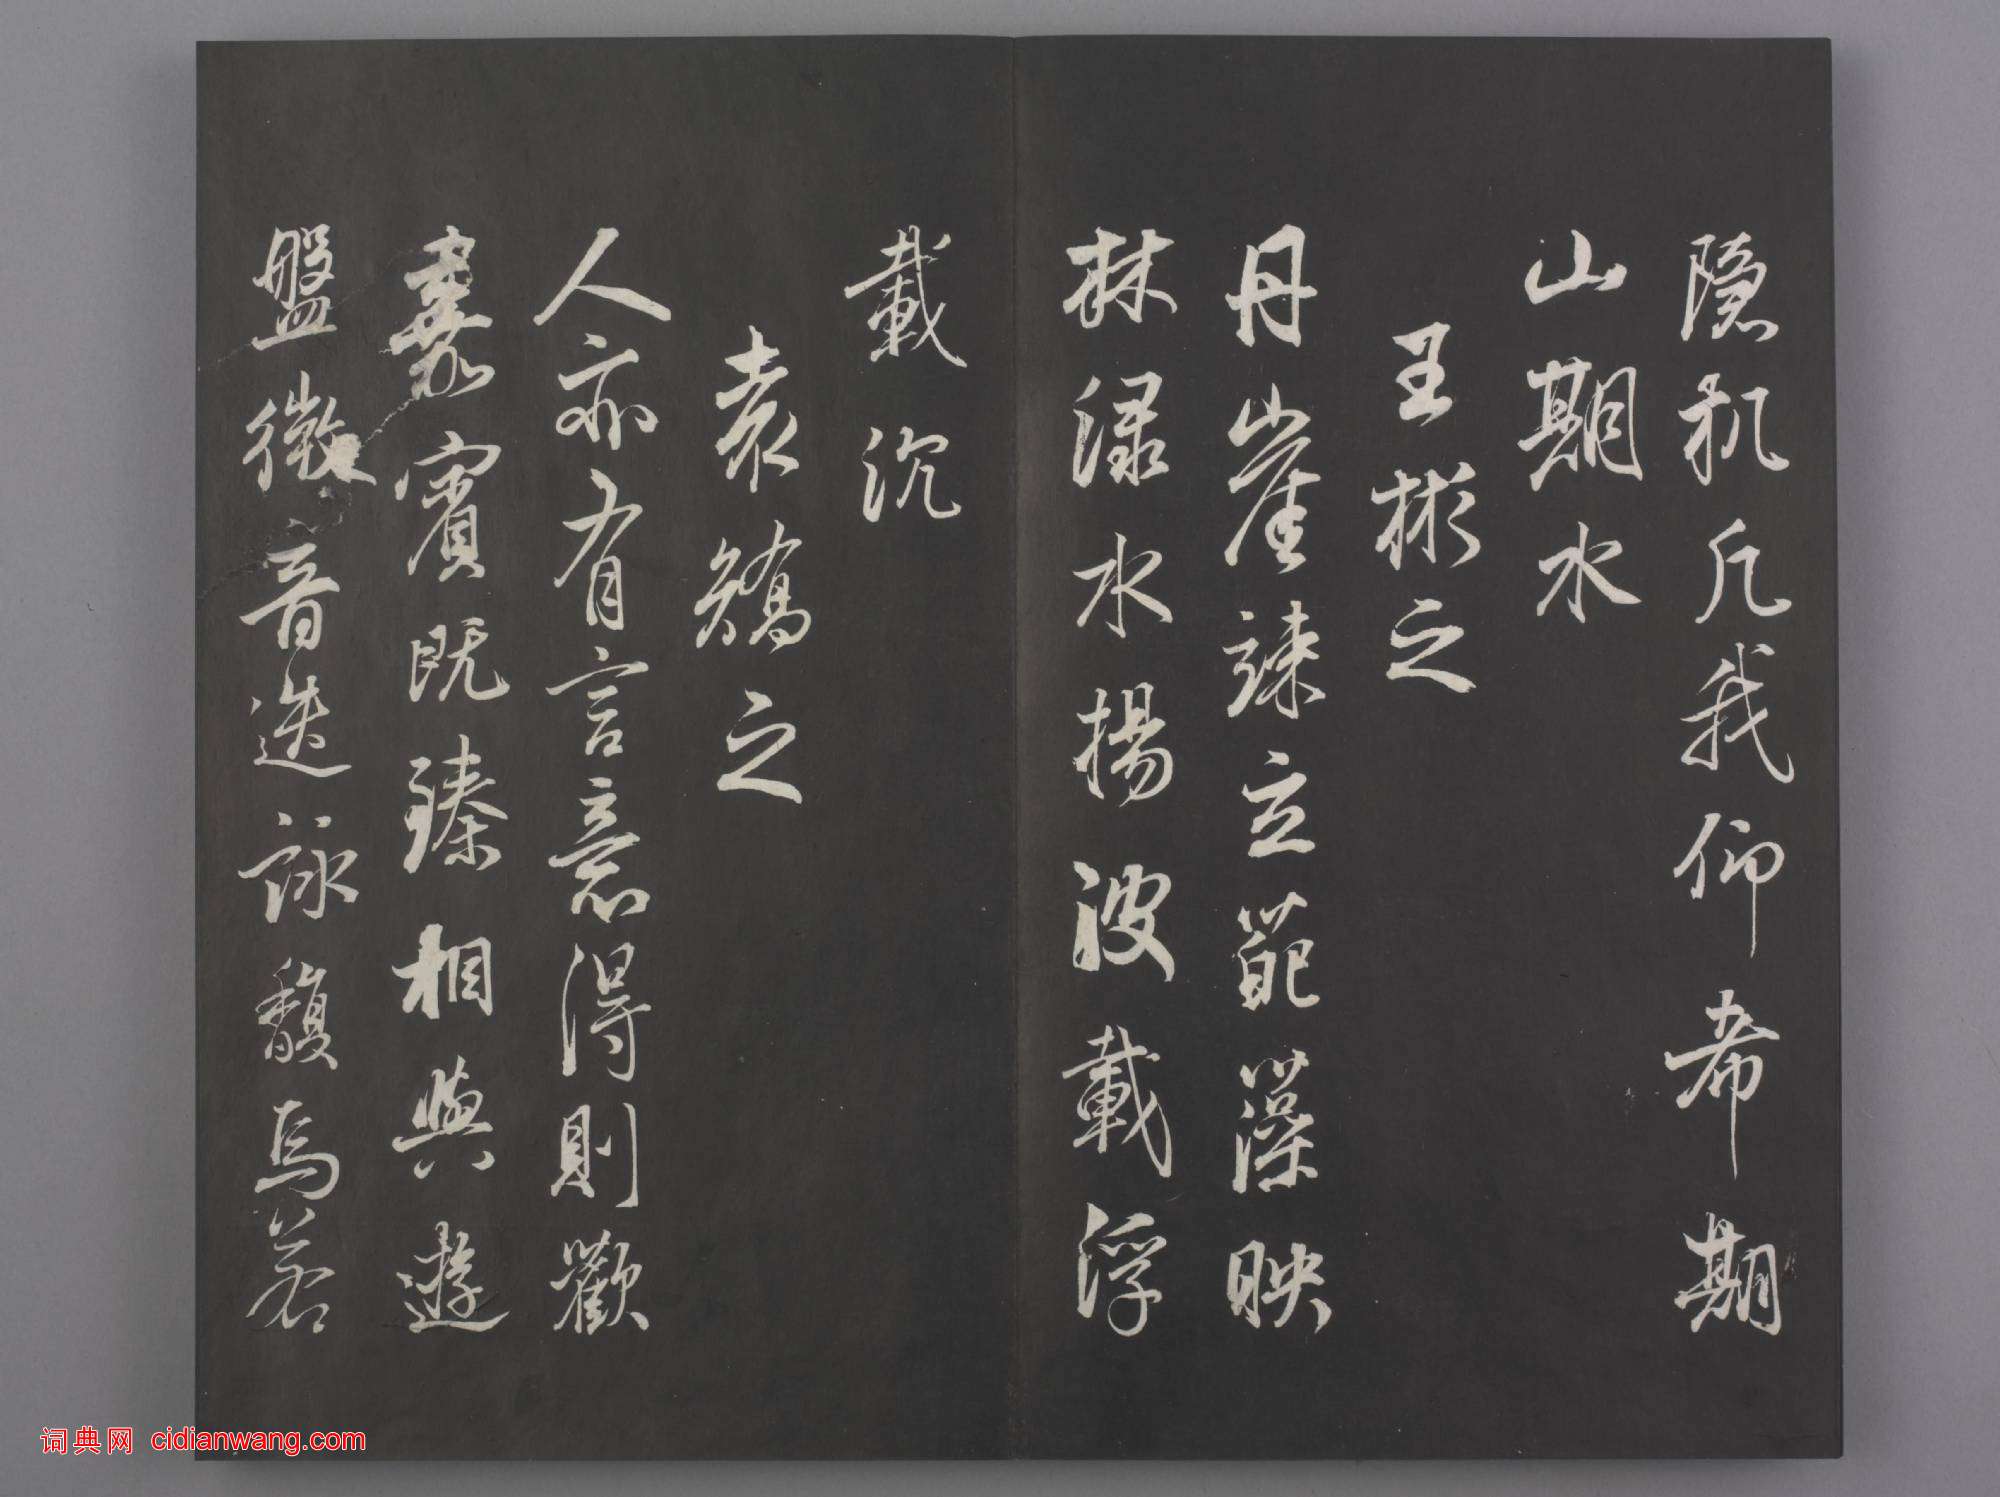 隱机凡我仰希期
山期水
王彬之
丹崖竦立葩藻映
林渌水揚波載浮
載沉
袁嶠之
人亦有言意得則歡
嘉賓既臻相與遊
盤微音迭詠馥焉若
词典网 cidianwang.com